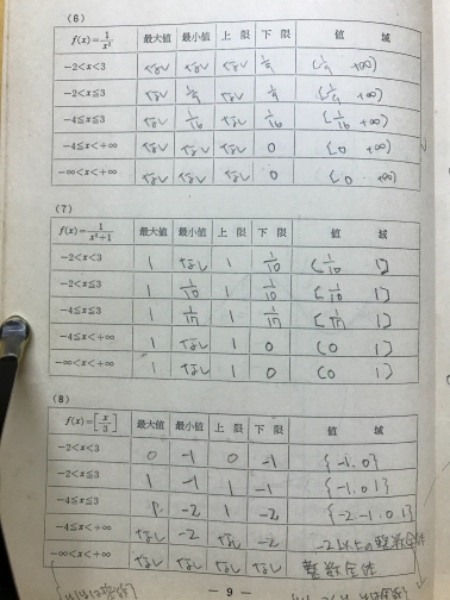 (6)
f(x)=1/x² 最大値 最小値 上限 下限 値域
−2<x<3 なし なし なし 1/9 (1/9 +∞)
−2<x≦3 なし 1/9 なし 1/9 [1/9 +∞)
−4≦x≦3 なし 1/16 なし 1/16 [1/16 +∞)
−4≦x<+∞ なし なし なし 0 (0 +∞)
−∞<x<+∞ なし なし なし 0 (0 +∞)
(7)
f(x)=1/(x²+1) 最大値 最小値 上限 下限 値域
−2<x<3 1 なし 1 1/10 (1/10 1]
−2<x≦3 1 1/10 1 1/10 [1/10 1]
−4≦x≦3 1 1/17 1 1/17 [1/17 1]
−4≦x<+∞ 1 なし 1 0 (0 1]
−∞<x<+∞ 1 なし 1 0 (0 1]
(8)
f(x)=[x/3] 最大値 最小値 上限 下限 値域
−2<x<3 0 -1 0 -1 {-1.0}
−2<x≦3 1 -1 1 -1 {-1.0 1}
−4≦x≦3 1 -2 1 -2 {-2 -1.0.1}
−4≦x<+∞ なし -2 なし -2 -2以上の整数全体
−∞<x<+∞ なし なし なし なし 整数全体
— 9 —